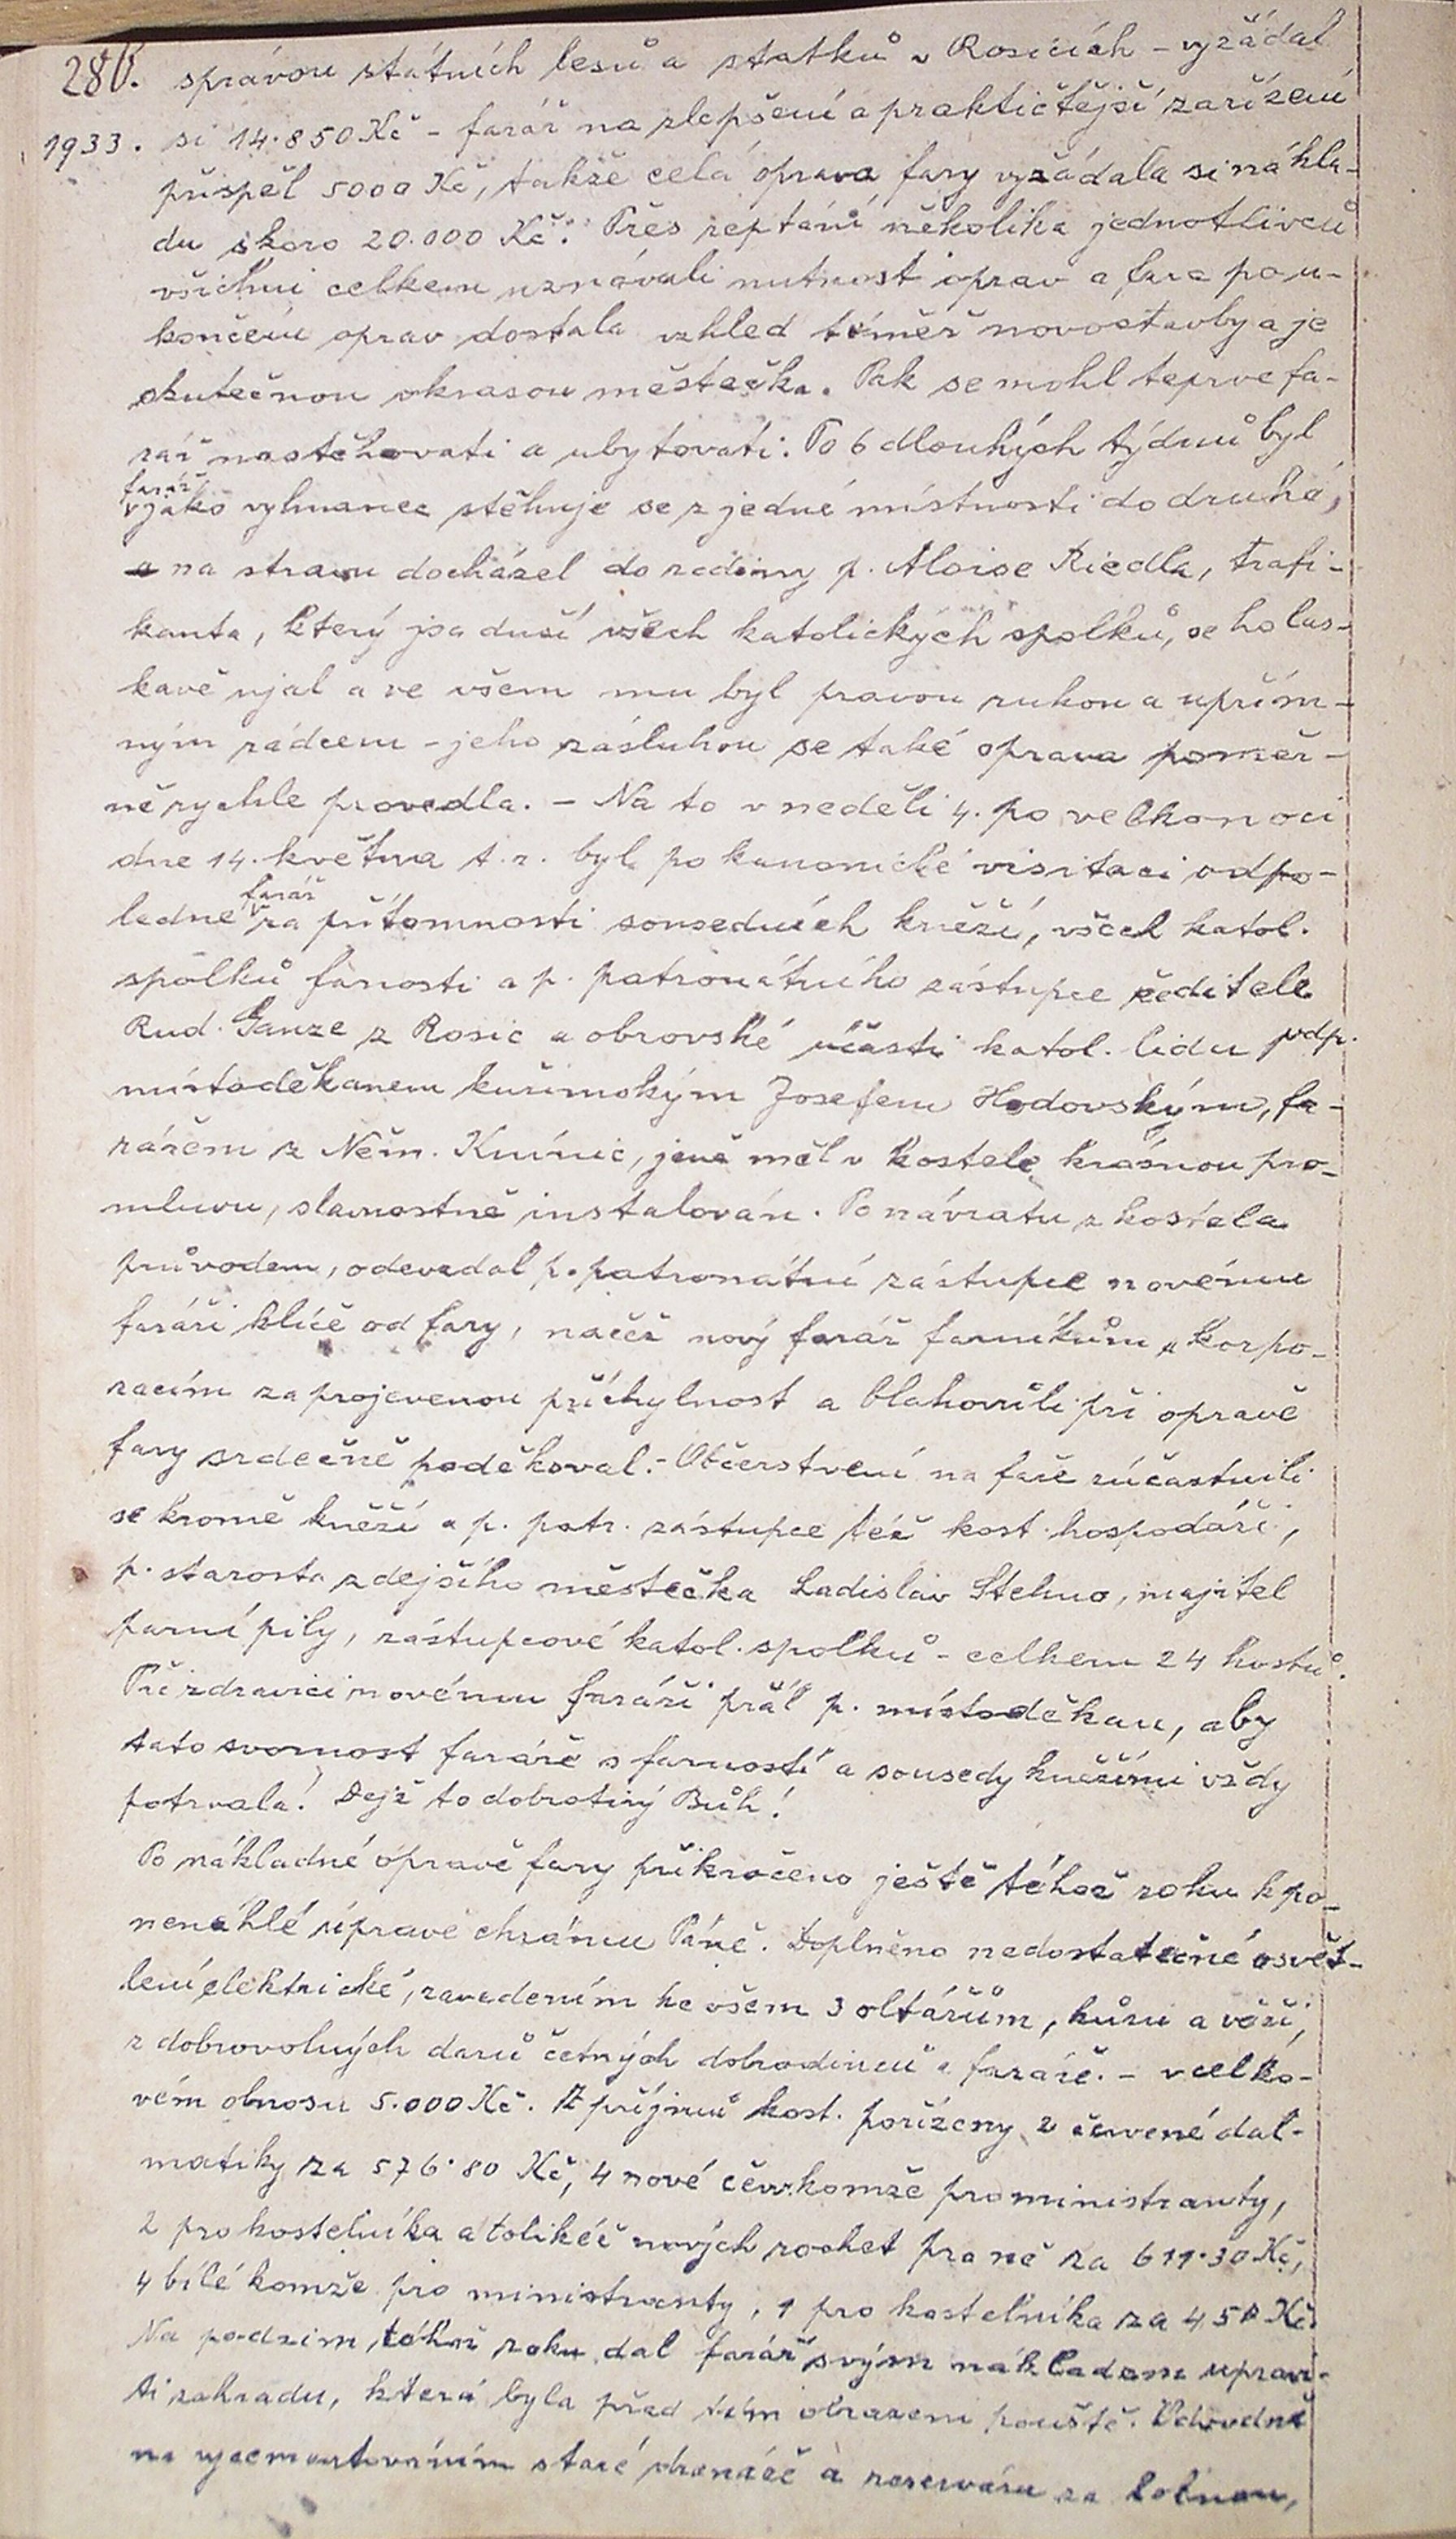 280. správou státních lesů a statků v Rosicích – vyžádal
1933. si 14.850 Kč – farář na zlepšení a praktičtější zařízení
přispěl 5000 Kč, takže celá oprava fary vyžádala si nákla-
du skoro 20.000 Kč. Přes reptání několika jednotlivců
všichni celkem uznávali nutnost oprav a fara po u-
končení oprav dostala vzhled téměř novostavby a je
skutečnou okrasou městečka. Pak se mohl teprve fa-
rář nastěhovati a ubytovati. Po 6 dlouhých týdnů byl
farář
jako vyhnanec stěhuje se z jedné místnosti do druhé,
a na stravu docházel do rodiny p. Aloise Riedla, trafi-
kanta, který jsa duší všech katolických spolků, se ho las-
kavě ujal a ve všem mu byl pravou rukou a upřím-
ným rádcem – jeho zásluhou se také oprava poměr-
ně rychle provedla. – Na to v neděli 4. po velkonoci
dne 14. května t. r. byl po kanonické visitaci odpo-
farář
ledne za přítomnosti sousedních kněží, všech katol.
spolků farnosti a p. patronátního zástupce ředitele
Rud. Ganze z Rosic a obrovské účasti katol. lidu vdp.
místoděkanem kuřimským Josefem Hodovským, fa-
rářem z Něm. Knínic, jenž měl v kostele krásnou pro-
mluvu, slavnostně instalován. Po návratu z kostela
průvodem, odevzdal p. patronátní zástupce novému
faráři klíče od fary, načež nový farář farníkům a korpo-
racím za projevenou příchylnost a blahovůli při opravě
fary srdečně poděkoval. – Občerstvení na faře zúčastnili
se kromě kněží a p. patr. zástupce též kost. hospodáři,
p. starosta zdejšího městečka Ladislav Stehno, majitel
parní pily, zástupcové katol. spolků – celkem 24 hostů.
Při zdravici novému faráři přál p. místoděkan, aby
tato svornost faráře s farností a sousedy kněžími vždy
potrvala! Dejž to dobrotivý Bůh!
Po nákladné opravě fary přikročeno ještě téhož roku k po-
nenáhlé úpravě chrámu Páně. Doplněno nedostatečné osvět-
lení elektrické, zavedením ke všem 3 oltářům, kůru a věži,
z dobrovolných darů četných dobrodinců a faráře. – v celko-
vém obnosu 5.000 Kč. Z příjmů kost. pořízeny 2 červené dal-
matiky za 576.80 Kč, 4 nové červ. komže pro ministranty,
2 pro kostelníka a tolikéž nových rochet pro ně za 611.30 Kč,
4 bílé komže pro ministranty, 1 pro kostelníka za 450 Kč.
Na podzim téhož roku dal farář svým nákladem upravi-
ti zahradu, která byla před tím obrazem pouště.
staré a reservoiru za